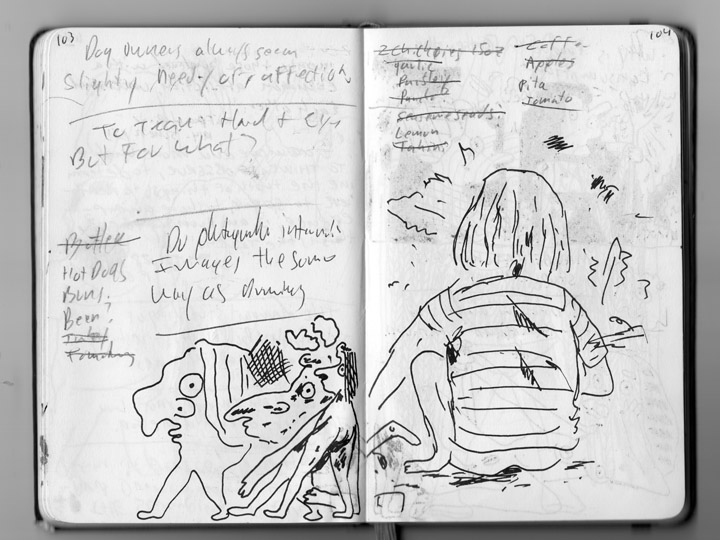 103
Dog owners always seem
slightly needy of affection
To Train Hard +
But For what?
Butter
Hot Dogs
Buns
Beer
Do photographs
Images the same
way as drawing
104
2 Chickpeas 15oz
garlic
Parsley
Lemon
Tahini
Coffee
Apples
Pita
Tomato